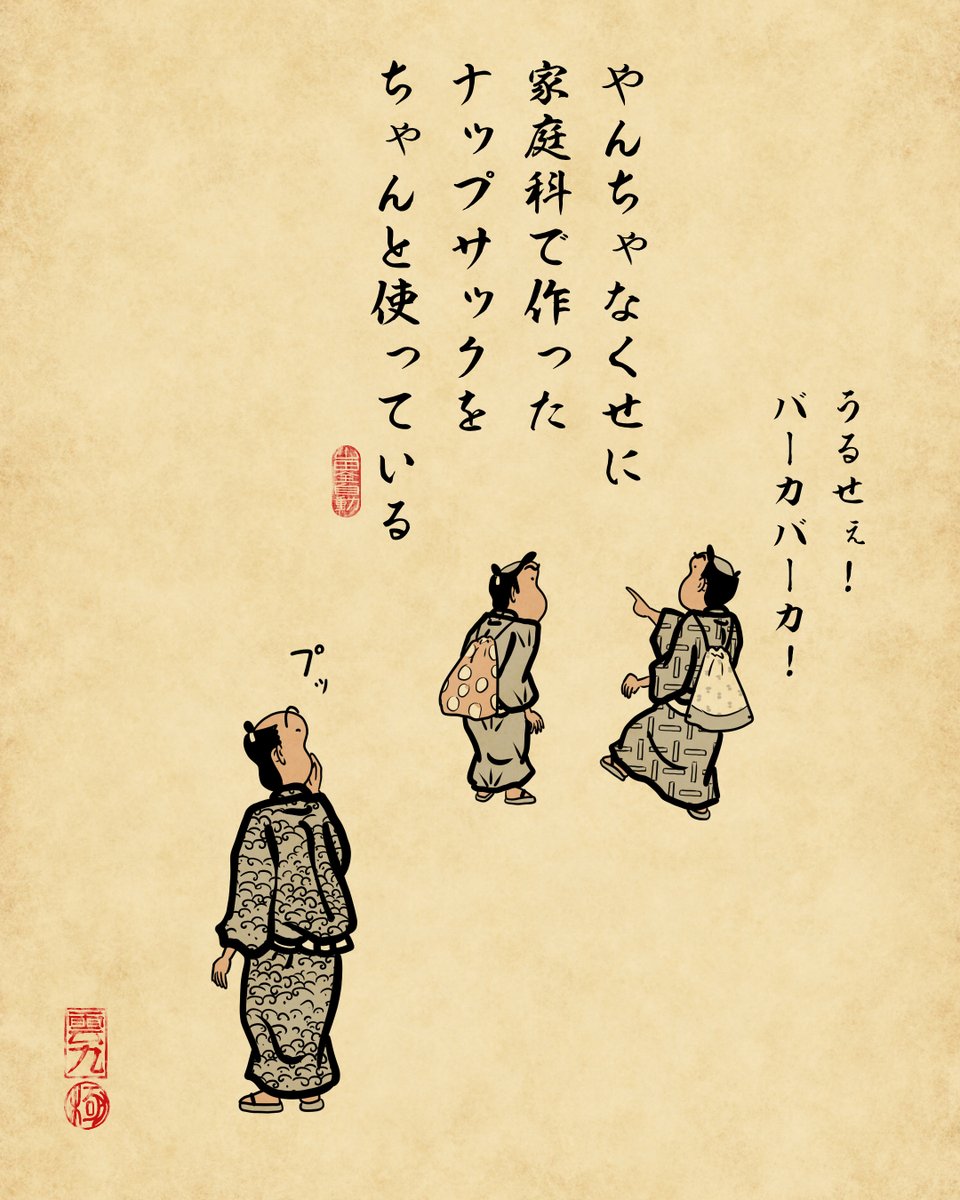 やんちゃなくせに
家庭科で作った
ナップサックを
ちゃんと使っている
うるせぇ！
バーカバーカ！
プッ
雲九
極